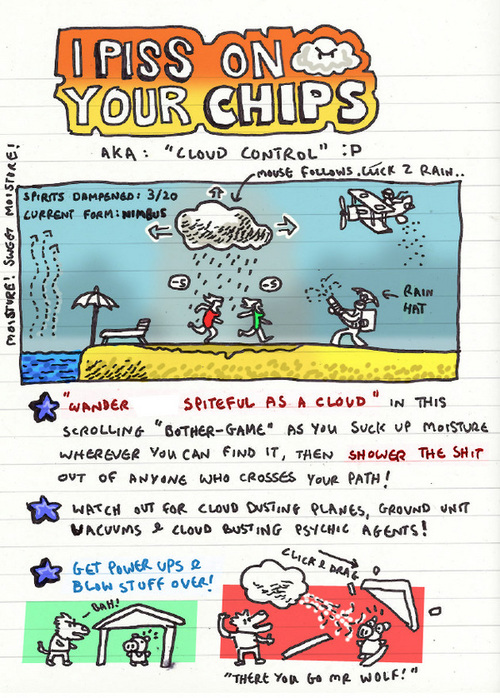 I PISS ON
YOUR CHIPS
AKA: "CLOUD CONTROL" :P
MOUSE FOLLOWS. CLICK 2 RAIN..
MOISTURE! SWEET MOISTURE!
SPIRITS DAMPENED: 3/20
CURRENT FORM: NIMBUS
-5
-5
RAIN
HAT
"WANDER SPITEFUL AS A CLOUD" IN THIS
SCROLLING "BOTHER-GAME" AS YOU SUCK UP MOISTURE
WHEREVER YOU CAN FIND IT, THEN SHOWER THE SHIT
OUT OF ANYONE WHO CROSSES YOUR PATH!
WATCH OUT FOR CLOUD DUSTING PLANES, GROUND UNIT
VACUUMS & CLOUD BUSTING PSYCHIC AGENTS!
GET POWER UPS &
BLOW STUFF OVER!
BAH!
CLICK & DRAG
"THERE YOU GO MR WOLF!"